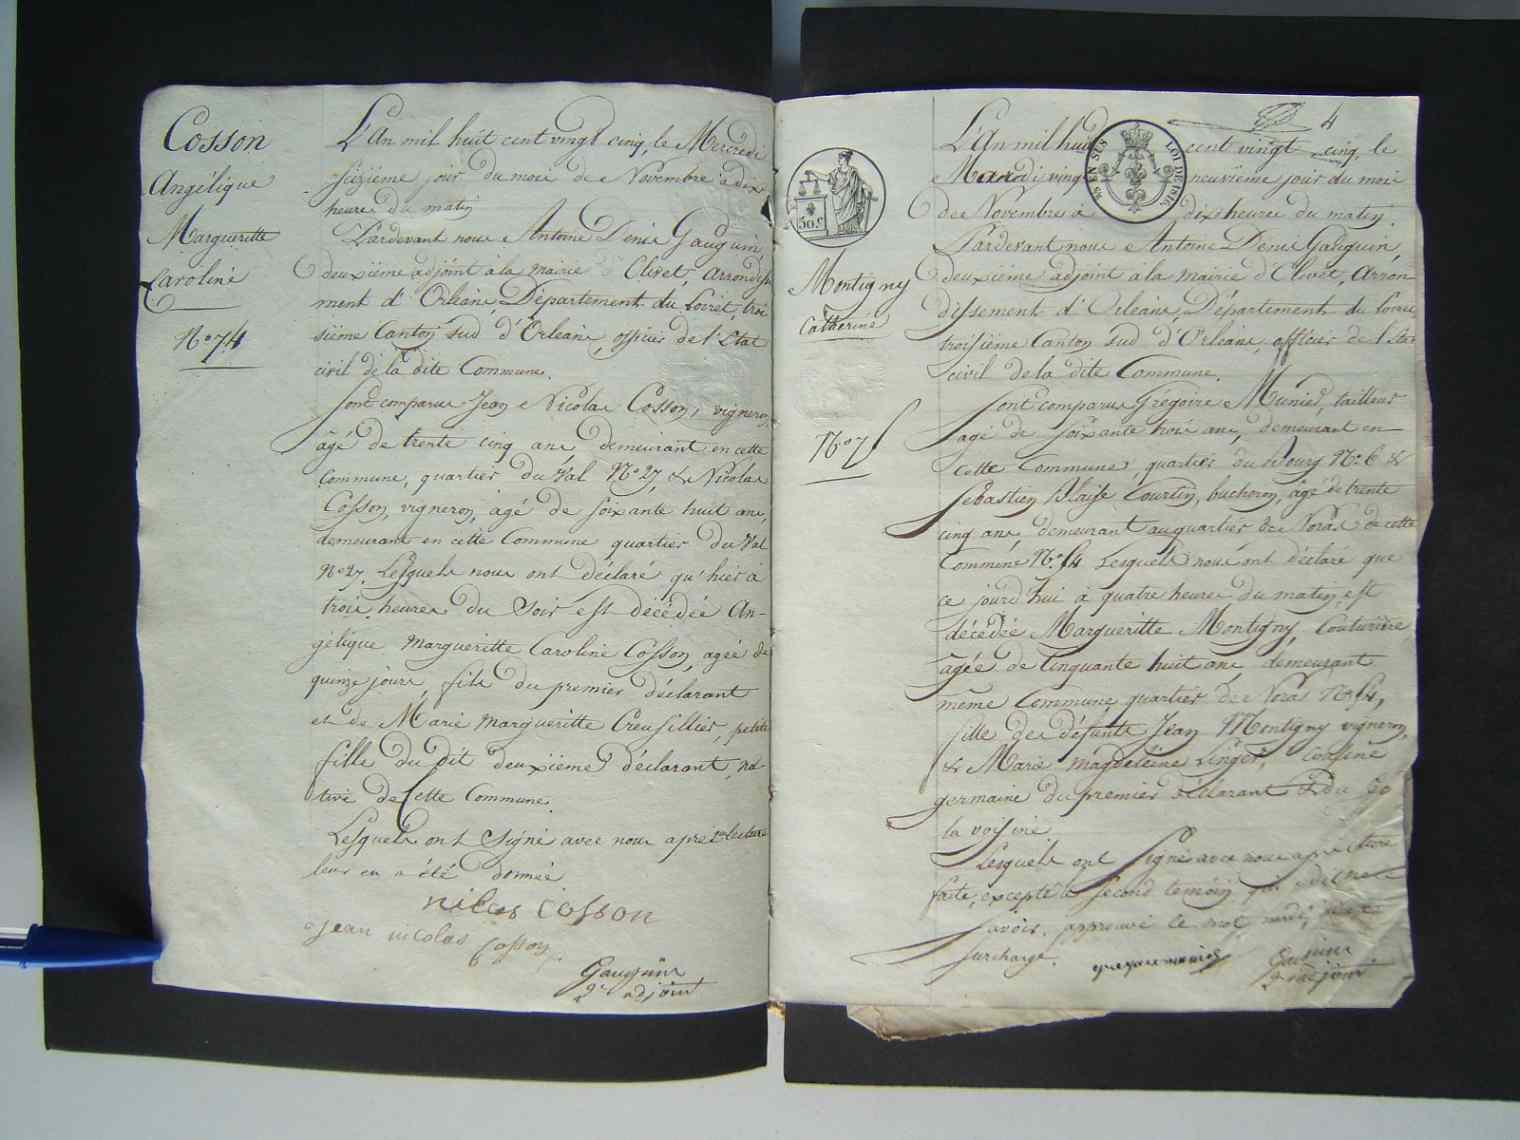 Cosson
Angélique
Margueritte
Caroline
N° 74
L'An mil huit cent vingt cinq, le Mercredi
seizième jour du mois de Novembre à dix
heures du matin
Pardevant nous Antoine Denis Gauguin,
deuxième adjoint à la mairie d'Olivet, arrondisse-
ment d'Orléans, Département du Loiret, troi
sième Canton sud d'Orléans, officier de l'Etat
civil de la dite Commune.
Sont comparus Jean Nicolas Cosson, vigneron,
âgé de trente cinq ans demeurant en cette
Commune, quartier du Val N° 27, & Nicolas
Cosson, vigneron, âgé de soixante huit ans,
demeurant en cette Commune quartier du Val
N° 27. Lesquels nous ont déclaré qu'hier à
trois heures du soir est décédée An-
gélique Margueritte Caroline Cosson, agée de
quinze jours, fille du premier déclarant
et de Marie Margueritte Creusillier, petite
fille du dit deuxième déclarant, na
tive de Cette Commune.
Lesquels ont signé avec nous après que lecture
leur en a été donnée
nicolas COSSON
Jean nicolas Cosson
Gauguin
2e adjoint
4
50 c.
EN SUS
LOI DE 1816
Montigny
Catherine
N° 75
L'An mil huit cent vingt cinq, le
Mardi vingt neuvième jour du mois
de Novembre à dix heures du matin.
Pardevant nous Antoine Denis Gauguin,
deuxième adjoint à la mairie d'Olivet, Arron
dissement d'Orléans, Département du Loiret,
troisième Canton sud d'Orléans, officier de l'Etat
civil de la dite Commune.
Sont comparus Grégoire Munier, tailleur
âgé de soixante trois ans, demeurant en
cette Commune, quartier du Bourg N° 6 &
Sébastien Blaise Courtin, bucheron, âgé de trente
cinq ans, demeurant au quartier de de cette
Commune N° 54 Lesquels nous ont déclaré que
ce jourd'hui à quatre heures du matin, est
décédée Margueritte Montigny, Couturière
âgée de Cinquante huit ans demeurant
même Commune quartier de N° 54,
fille de défunts Jean Montigny vigneron,
& Marie Magdeleine Linger, Cousine
germaine du premier déclarant & du 2e
la voisine.
Lesquels ont signé avec nous après lecture
faite, excepté le second témoin qui a dit ne le
savoir. approuvé le mot mardi,
surchargé.
gregoire munier
Gauguin
2e adjoint